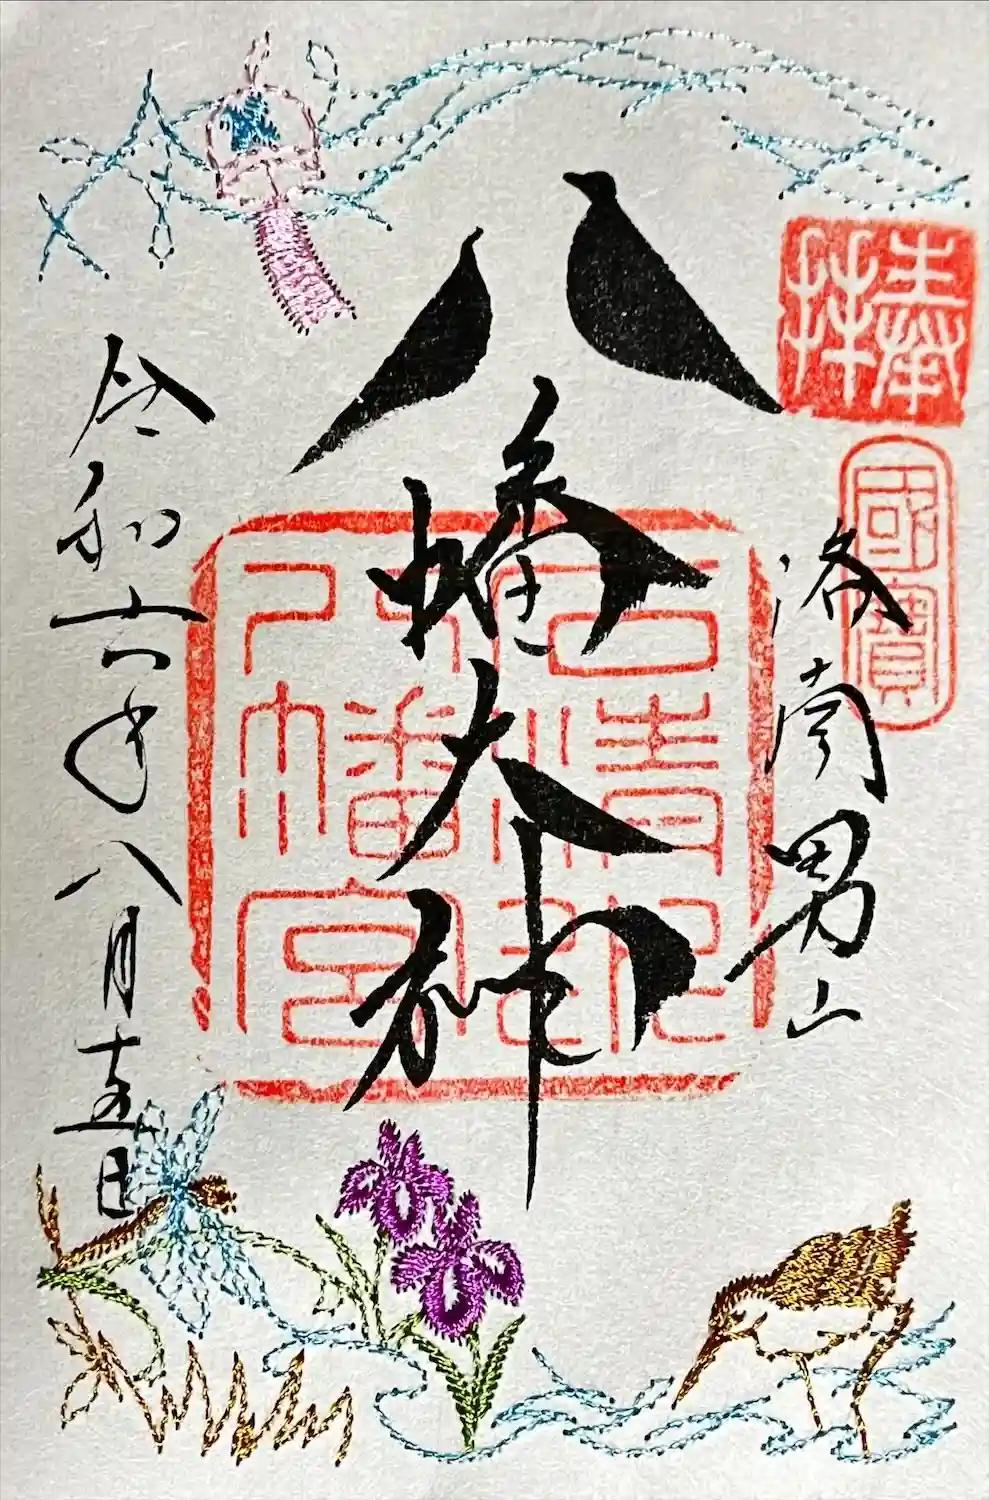 奉拝
國寶
洛南男山
八幡大神
石清水八幡宮
令和六年八月十五日